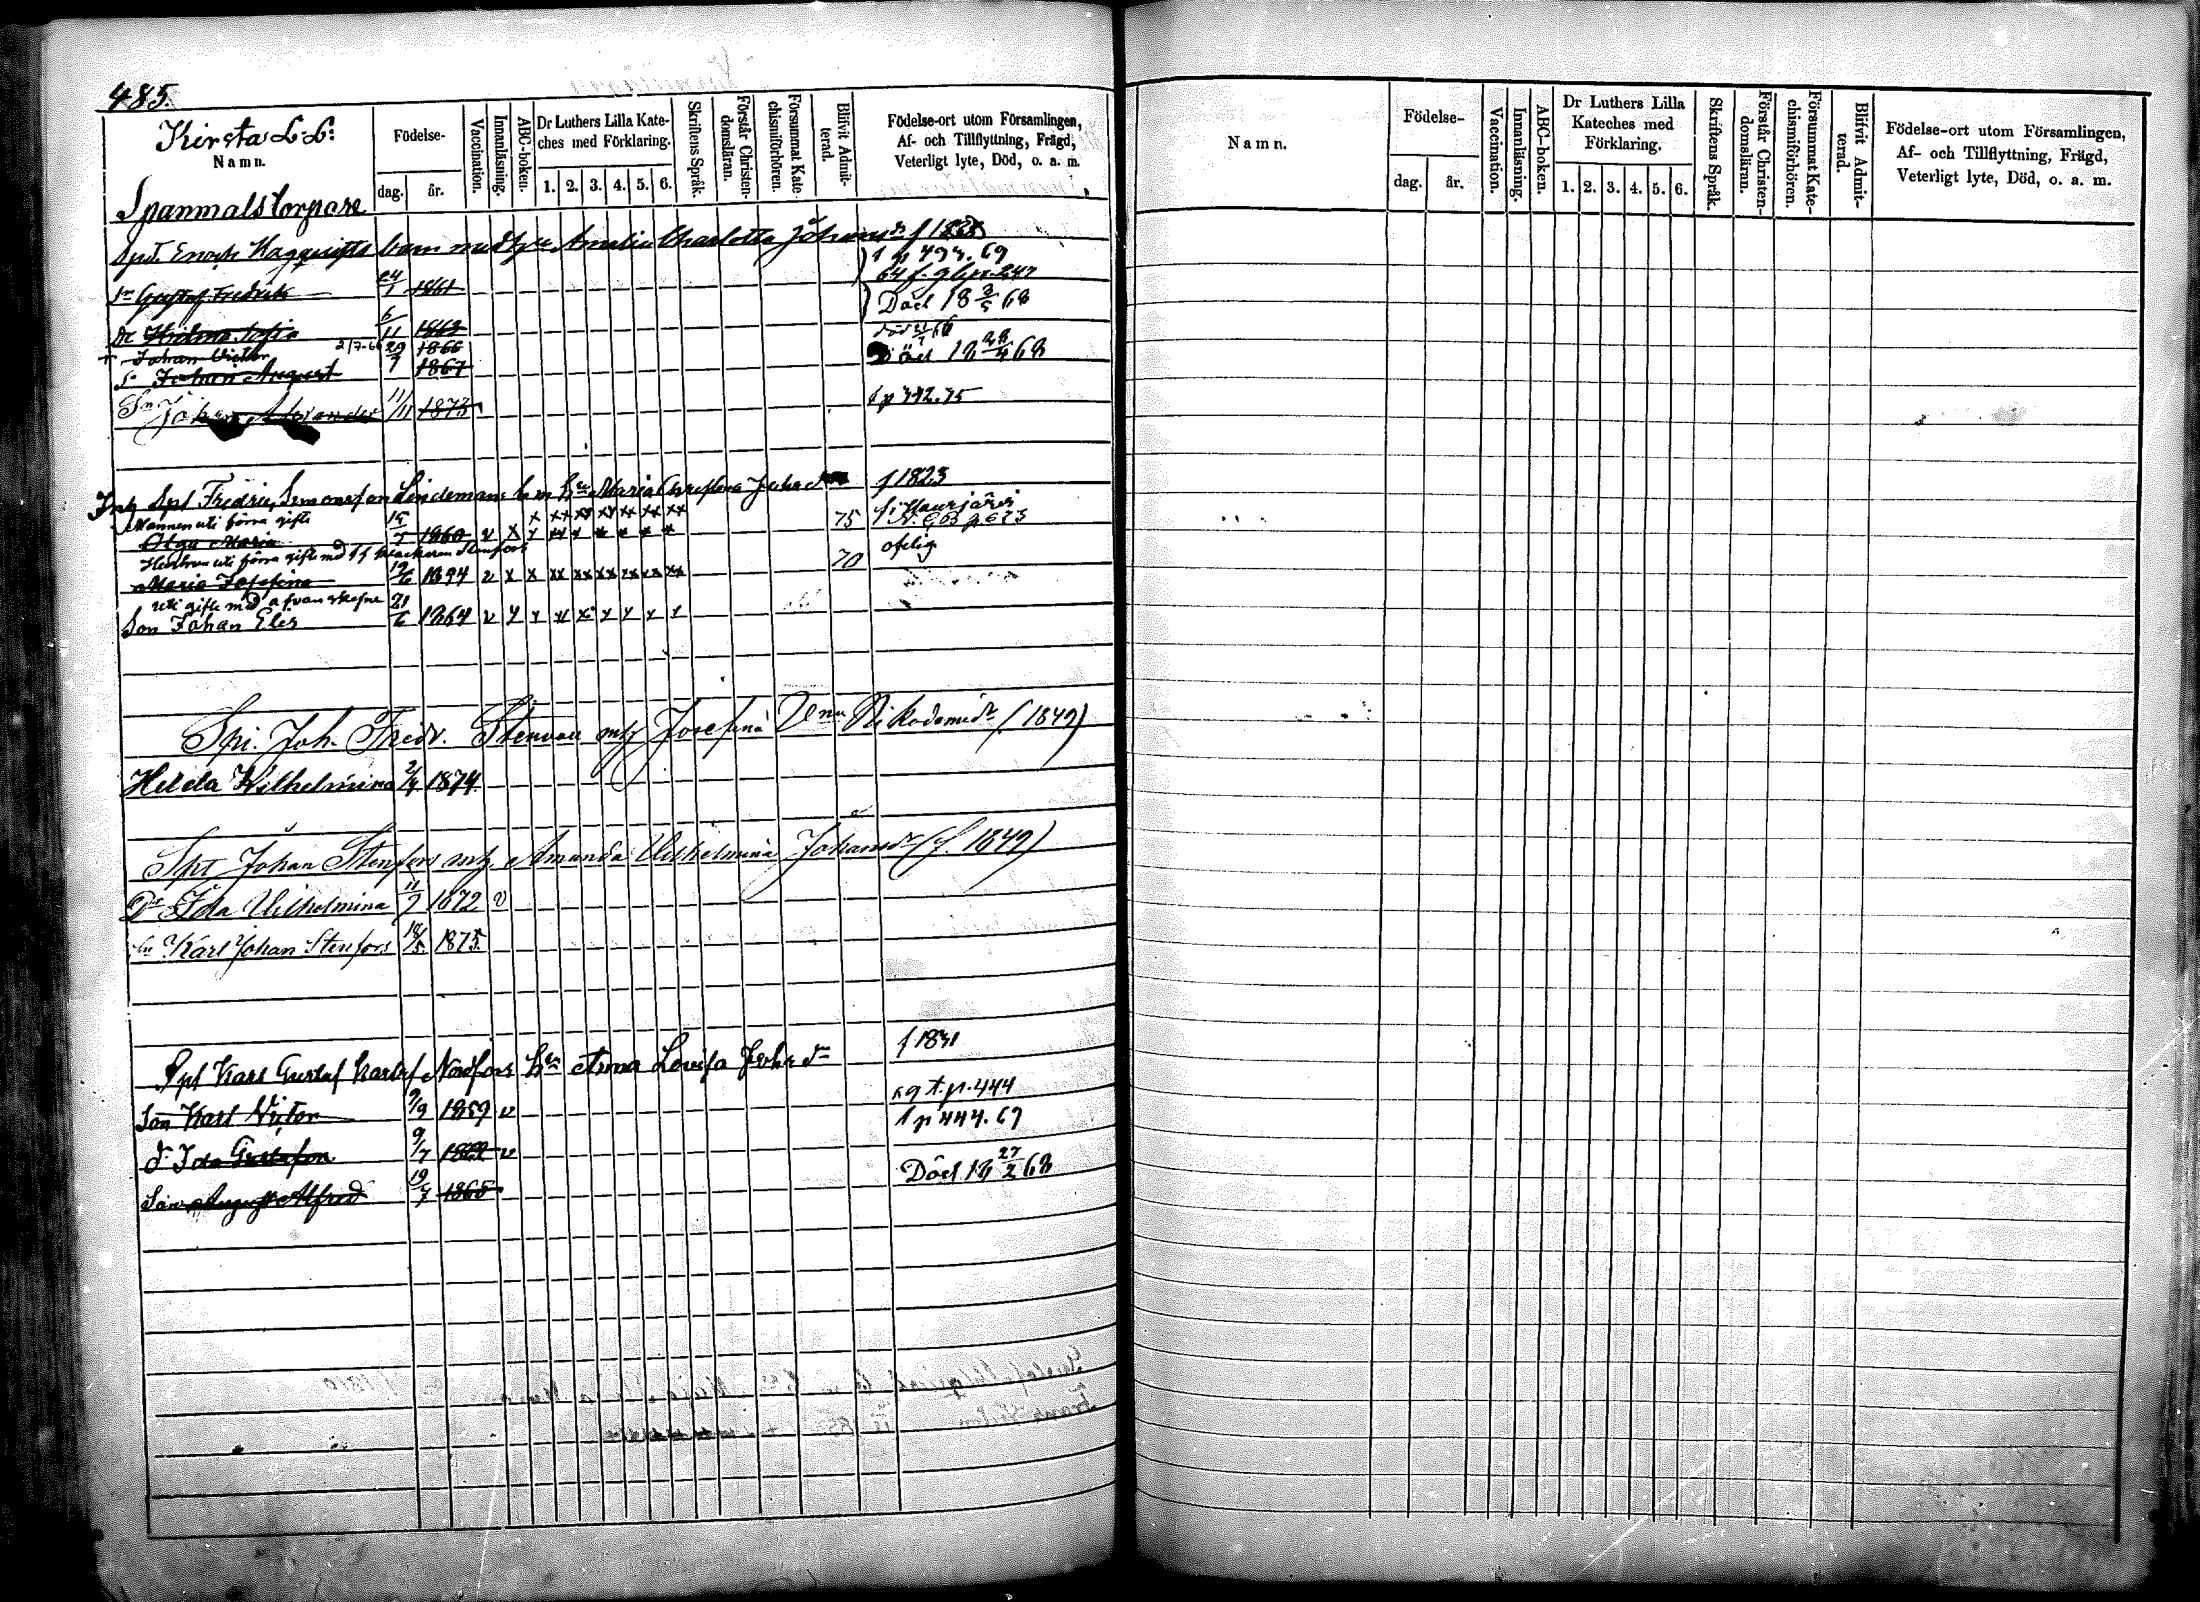 485.
Kirsta L. L:
Namn.
Födelse-
dag. år.
Vaccination.
Innanläsning.
ABC-boken.
Dr Luthers Lilla Kate-
ches med Förklaring.
1. 2. 3. 4. 5. 6.
Skriftens Språk.
Förstår Christen-
domsläran.
Försummat Kate-
chismiförhören.
Blifvit Admit-
terad.
Födelse-ort utom Församlingen,
Af- och Tillflyttning, Frägd,
Veterligt lyte, Död, o. a. m.
Spanmålstorpare
barn med Amalia Charlotta Johansdr f 1838
t p 493. 69
Sn Gustaf Fredrik 24/1 1861
Dr Sofia 6/11 1863 Död 18 3/5 68
+ Johan Victor 2/7-66 1866
Sn Johan August 29/7 1867 Död 18 28/4 68
Johan Alexander 11/11 1873 t p 342. 75
Spt Fredric Simonsson Lindeman hu Maria Christina Johadr f 1823
Mannen uti förra gifte
Olga Maria 1860 v x x xx x x x x x 75
Hustrun uti förra gifte med Stenfors
Maria Josefina v x x xx xx xx xx xx xx 70 ofelig
uti gifte med afvanskrefne
Son Johan Elis 21/6 1864 v x x x x x x x x
Spt. Joh. Fredr. Stenvall Josefina Nikodemidr (1849)
Hilda Wilhelmina 2/4 1874
Spt Johan Stenfors Amanda Vilhelmina Johansdr (f. 1849)
Dr Ida Vilhelmina 11/7 1872 v
Sn Karl Johan Stenfors 18/5 1875.
Spt Karl Gustaf Karlsf Nordfors hu Anna Lovisa Johadr f 1831
Son Karl Victor 9/9 1859 v 69 t. p. 444
dr Ida Gustafva 9/7 1862 v t p 444. 69
Son August Alfred 19/7 1865 Död 18 27/2 68
Namn.
Födelse-
dag. år.
Vaccination.
Innanläsning.
ABC-boken.
Dr Luthers Lilla
Kateches med
Förklaring.
1. 2. 3. 4. 5. 6.
Skriftens Språk.
Förstår Christen-
domsläran.
Försummat Kate-
chismiförhören.
Blifvit Admit-
terad.
Födelse-ort utom Församlingen,
Af- och Tillflyttning, Frägd,
Veterligt lyte, Död, o. a. m.